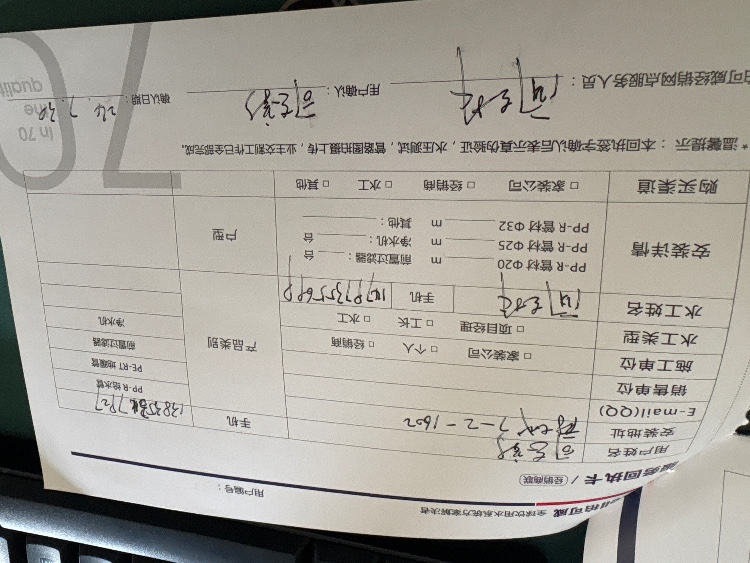 伯可威 全球饮用水系统方案解决者
用户编号：
温馨回执卡 / 经销商联
用户姓名
手机
安装地址 7-2-1602
E-mail(QQ)
销售单位
施工单位 □ 家装公司 □ 个人 □ 经销商
水工类型 □ 项目经理 □ 工长 □ 水工
水工姓名 手机
产品类别
PP-R 给水管
PE-RT 地暖管
前置过滤器
净水机
安装详情
PP-R 管材 Φ20 m 前置过滤器： 台
PP-R 管材 Φ25 m 净水机： 台
PP-R 管材 Φ32 m 其他：
户型
购买渠道 □ 家装公司 □ 经销商 □ 水工 □ 其他
* 温馨提示：本回执签字确认后表示真伪验证，水压测试，管路图拍摄上传，业主交割工作已全部完成。
伯可威经销网点服务人员： 用户确认： 确认日期：
In 70
the
qualit